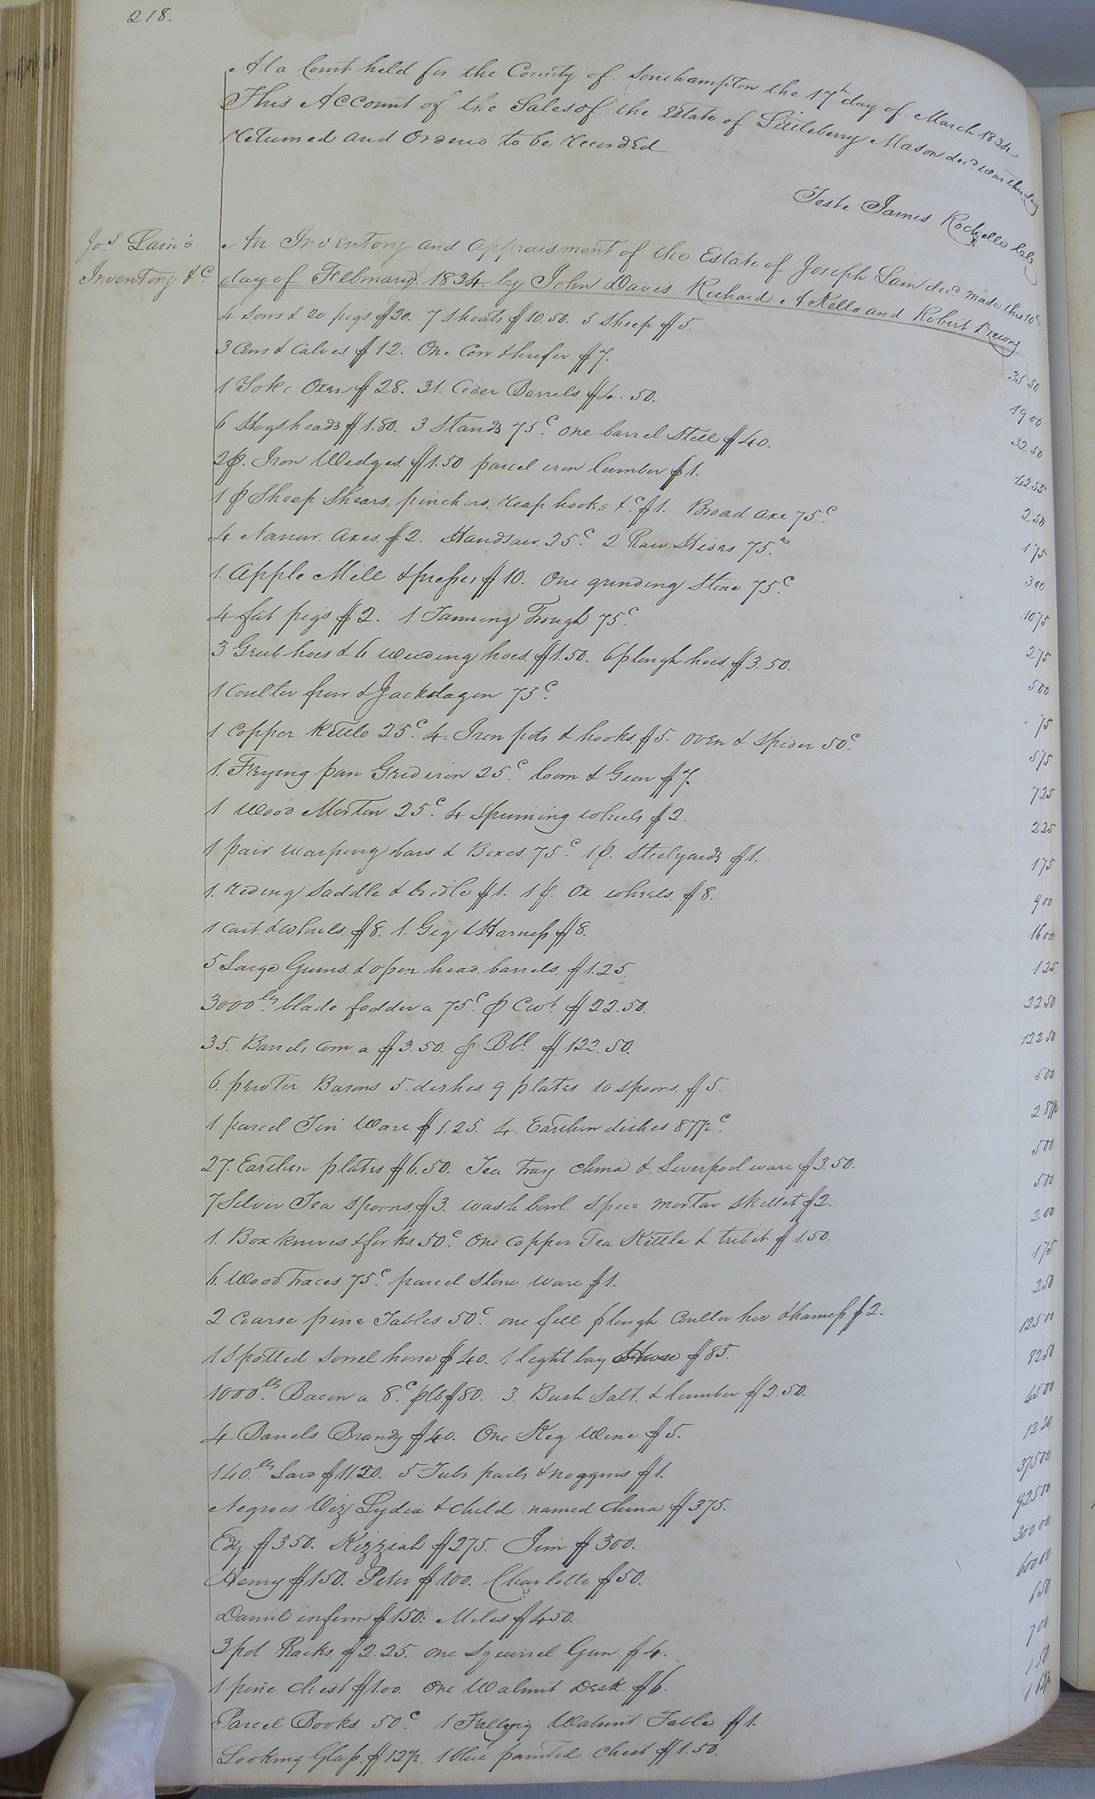 218.
At a Court held for the County of Southampton the 17th day of March 1834
This Account of the Sales of the Estate of Littleberry Mason decd was this day
returned and Ordered to be recorded
Teste James Rochelle Clk
Jos Lain's
Inventory &c
An Inventory and appraisment of the Estate of Joseph Lain decd made this 10th
day of February 1834 by John Daves Richard A Kello and Robert Drewry
4 Sows & 20 pigs $20. 7 Shoats $10.50. 5 Sheep $5. 35 50
3 Cows & Calves $12. One Cow & heifer $7. 19 00
1 Yoke Oxen $28. 31 Cider Barrels $4.50. 32 50
6 Hogsheads $1.80. 3 Stands 75c. one barrel Still $40. 42 55
2 p. Iron Wedges $1.50 parcel iron lumber $1. 2 50
1 p Sheep Shears, pinchers, reap hooks &c $1. Broad axe 75c. 1 75
4 Narrow Axes $2. Handsaw 25c 2 Raw Hides 75.cts 3 00
1. Apple Mill & press $10. One grinding Stone 75c 10 75
4 fat pigs $2. 1 Tanning Trough 75c 2 75
3 Grub hoes & 6 weeding hoes $1.50. 6 plough hoes $3.50. 5 00
1 Coulter frow & Jack 75c. 75
1 Copper Kettle 25c. 4 Iron pots & hooks $5. oven & spider 50c. 5 75
1. Frying pan Gridiron 25c. loom & Gear $7. 7 25
1 Wood Mortar 25c. 4 Spinning wheels $2. 2 25
1 pair warping bars & Boxes 75c 1 p. Steelyards $1. 1 75
1. riding Saddle & bridle $1. 1 p. Ox wheels $8. 9 00
1 Cart & wheels $8. 1. Gig & Harness $8. 16 00
5 Large Gums & open head barrels $1.25. 1 25
3000 lbs blade fodder a 75c p Cwt $22.50. 22 50
35. Barrels corn a $3.50. p Bbl $122.50. 122 50
6. pewter Basons 5. dishes 9 plates 10 spoons $5. 5 00
1 parcel Tin Ware $1.25. 4. Earthen dishes 87½c. 2 87½
27. Earthen plates $6.50. Tea tray china & Liverpool ware $3.50. 5 00
7 Silver Tea Spoons $3. wash bowl. Spice mortar skillet $2. 5 00
1. Box knives & forks 50c One Copper Tea Kettle & tribet $1.50. 2 00
6. Wood traces 75c. parcel Stone ware $1. 1 75
2 Coarse pine Tables 50c. one full plough Coulter hoe & hames $2. 2 50
1 Spotted Sorrel horse $40. 1 light bay Horse $85. 125 00
1000 lbs Bacon a 8c plb $80. 3. Bush Salt & lumber $2.50. 82 50
4 Barrels Brandy $40. One Keg Wine $5. 45 00
140. lbs Lard $11.20. 5 Tubs pails & noggins $1. 12 20
Negroes Viz Lydia & Child named China $375. 375 00
Edy $350. Kizziah $275. Jim $300. 925 00
Henry $150. Peter $100. Charlotte $50. 300 00
Daniel infirm $150. Miles $450. 600 00
3 pot Racks $2.25. one Squirrel Gun $4. 6 50
1 pine Chest $1.00. One Walnut Desk $6. 7 00
Parcel Books 50c 1 Falling Walnut Table $1. 1 50
Looking Glass $.12½. 1 blue painted Chest $1.50. 1 62½